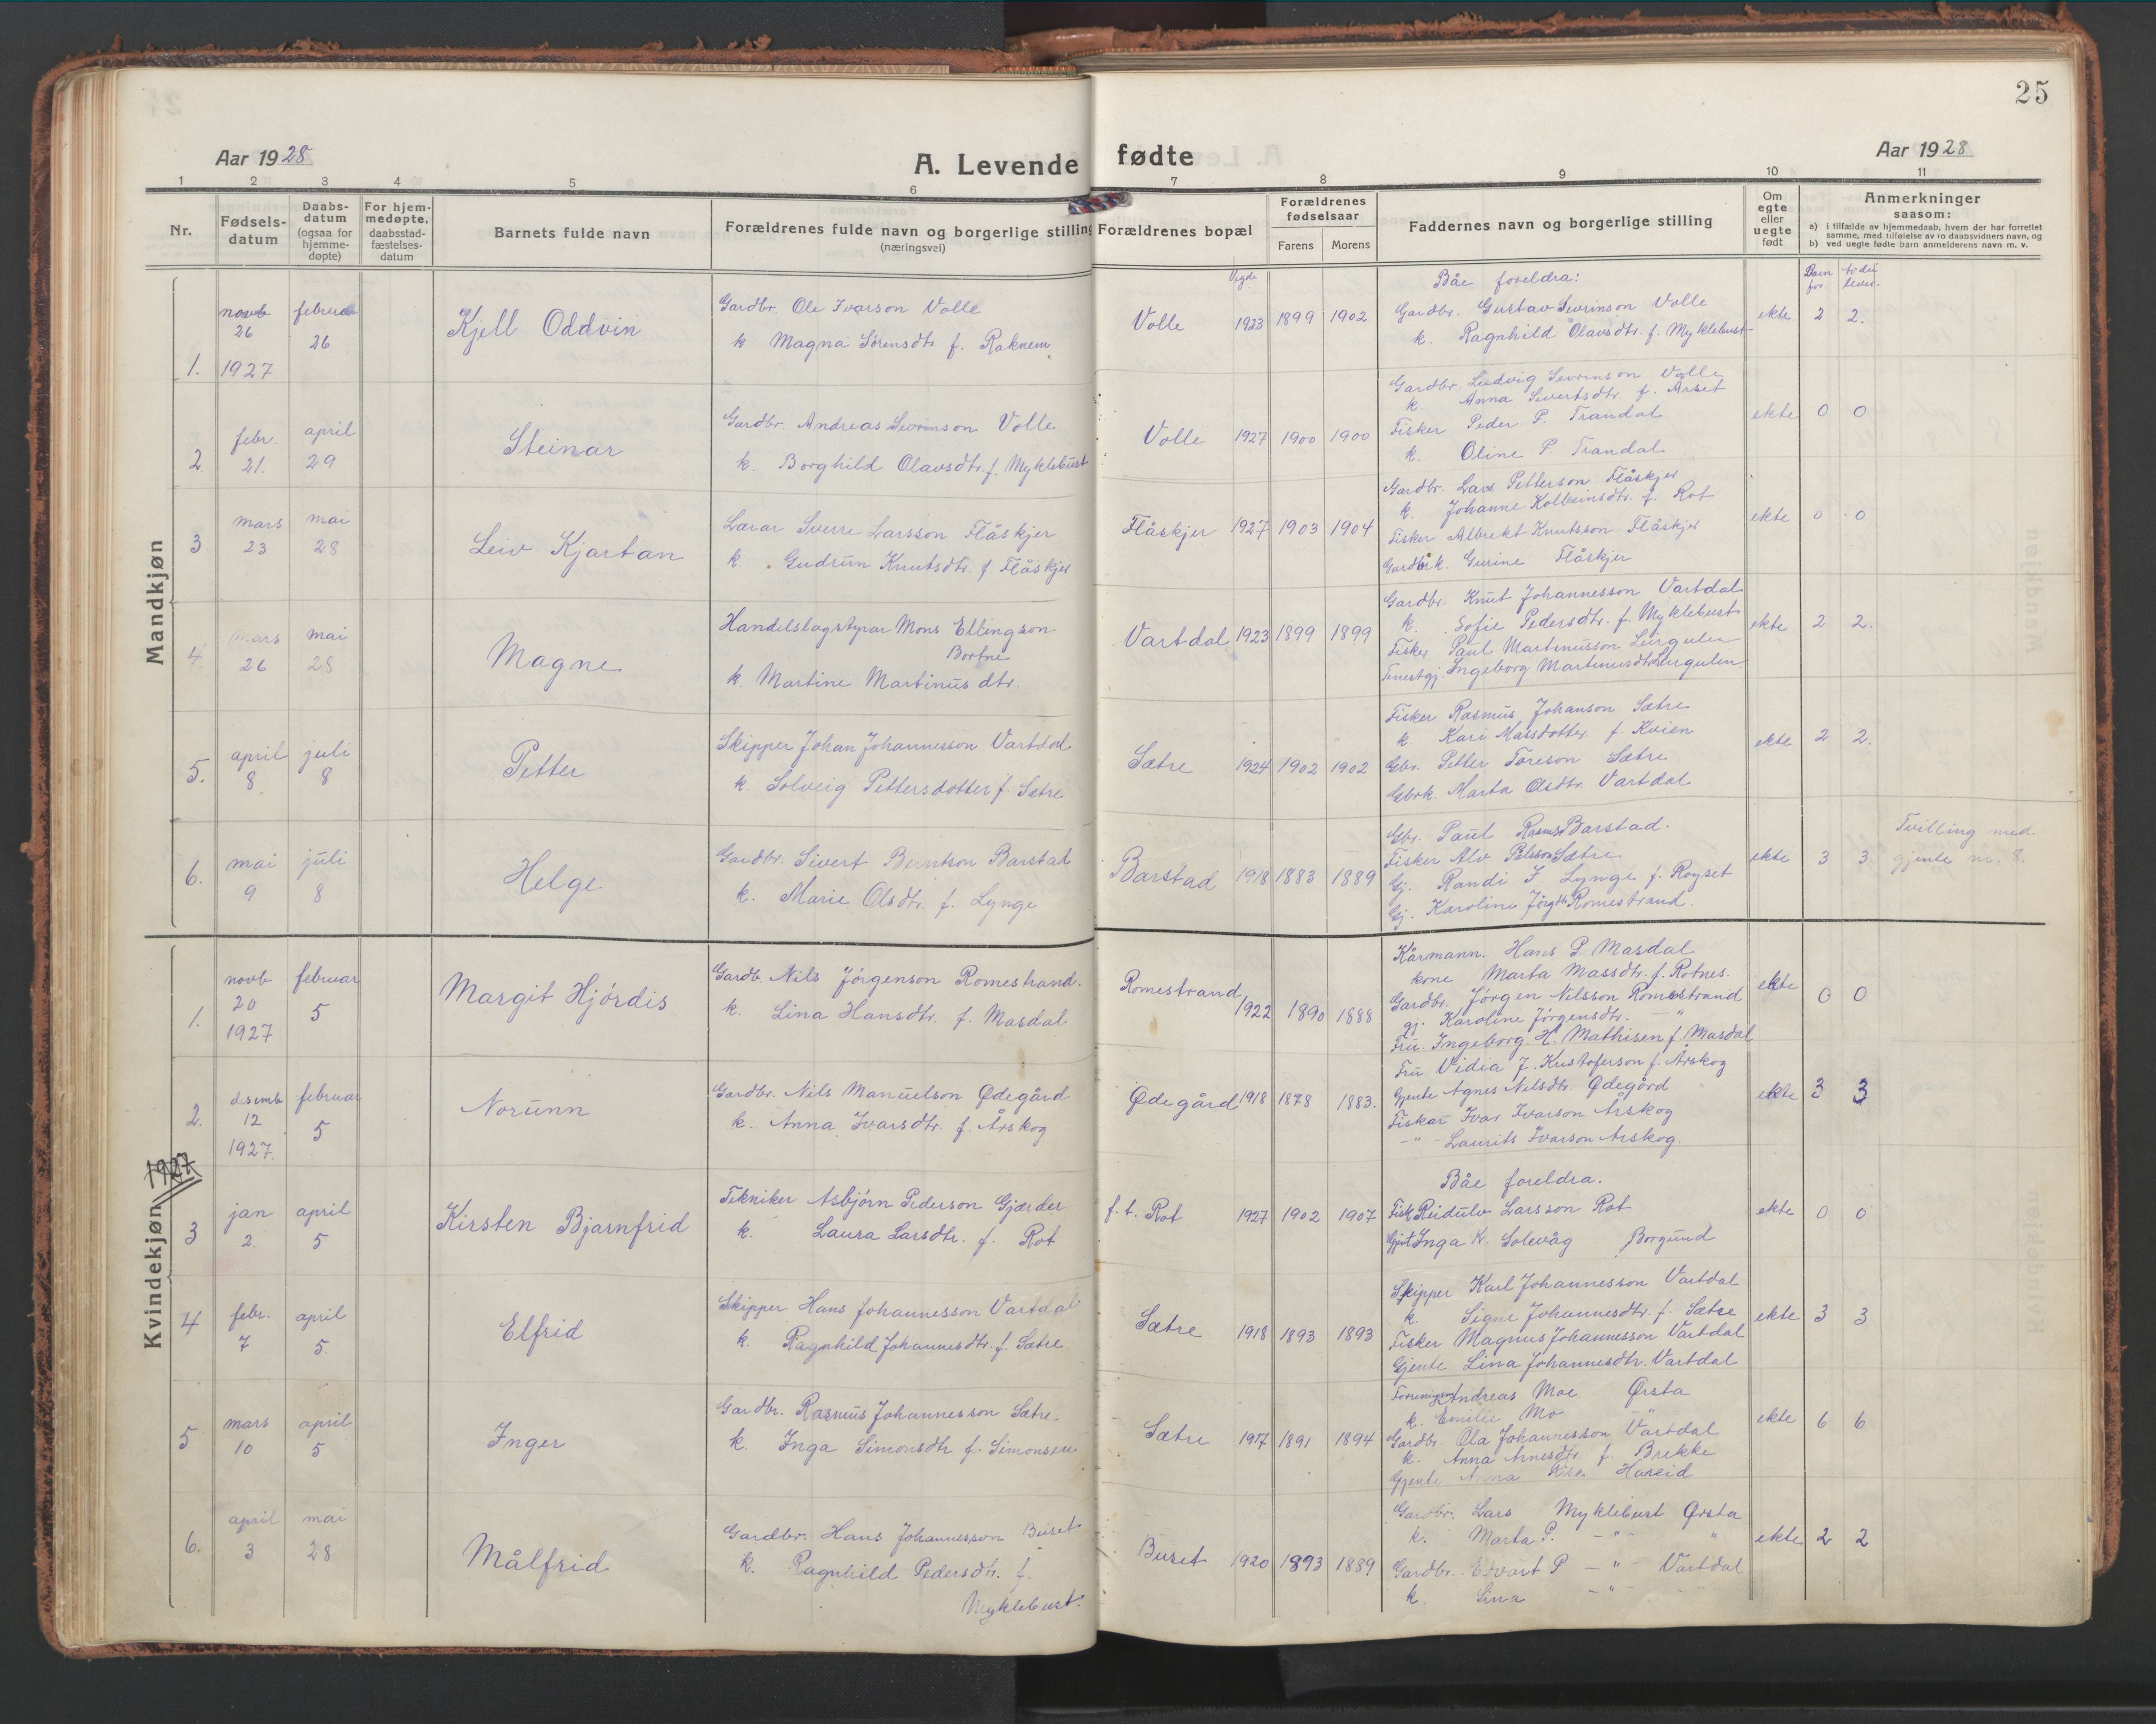 25
Aar 1928
A. Levende fødte
Aar 1928
1 2 3 4 5 6 7 8 9 10 11
Nr.
Fødsels-
datum
Daabs-
datum
(ogsaa for
hjemme-
døpte)
For hjem-
medøpte,
daabsstad-
fæstelses-
datum
Barnets fulde navn
Forældrenes fulde navn og borgerlige stilling
(næringsvei)
Forældrenes bopæl
Forældrenes
fødselsaar
Farens Morens
Faddernes navn og borgerlige stilling
Om
egte
eller
uegte
født
Anmerkninger
saasom:
a) i tilfælde av hjemmedaab, hvem der har forrettet
samme, med tilføielse av to daabsvidners navn, og
b) ved uegte fødte barn anmelderens navn m. v.
Mandkjøn
Vigde
Barn før
av dei lever.
1. novb 26 1927 februar 26
Kjell Oddvin
Gardbr. Ole Ivarson Volle
k Magna Sørensdtr. f. Raknem
Volle 1923 1899 1902
Båe foreldra:
Gardbr. Gustav Sevrinson Volle
k. Ragnhild Olavsdtr. f. Myklebust
ekte 2 2.
2 febr. 21. april 29
Steinar
Gardbr. Andreas Sevrinson Volle
k. Borghild Olavsdtr. f. Myklebust
Volle 1927 1900 1900
Gardbr. Ludvig Sevrinson Volle
k. Anna Sivertsdtr. f. Årset
Fisker Peder P. Trandal
k. Oline P. Trandal
ekte 0 0
3 mars 23 mai 28
Leiv Kjartan
Lærar Sverre Larsson Flåskjer
k. Gudrun Knutsdtr. f. Flåskjer
Flåskjer 1927 1903 1904
Gardbr. Lars Petterson Flåskjer
k. Johanne Kolbeinsdtr. f. Rot
Fisker Albrekt Knutsson Flåskjer
Gardbrk. Gurine Flåskjer
ekte 0 0
4. mars 26 mai 28
Magne
Handelslagstyrar Mons Ellingson
Bortne
k. Martine Martinusdtr.
Vartdal 1923 1899 1899
Gardbr. Knut Johannesson Vartdal
k. Sofie Pedersdtr. f. Myklebust
Fisker Paul Martinusson Leirgulen
Tenestgj. Ingeborg Martinusdtr Leirgulen
ekte 2 2.
5. april 8 juli 8
Petter
Skipper Johan Johannesson Vartdal
k. Solveig Pettersdotter f. Sætre
Sætre 1924 1902 1902
Fisker Rasmus Johanson Sætre
k. Kari Massdotter f. Kvien
Gbr. Petter Toreson Sætre
Gbrk. Marta Olsdtr. Vartdal
ekte 2 2.
6. mai 9 juli 8
Helge
Gardbr. Sivert Berntson Barstad
k. Marie Olsdtr. f. Lynge
Barstad 1918 1883 1889
Gbr. Paul Rasmus Barstad.
Fisker Alv Pålsson Sætre
Gj. Randi I Lynge f. Røyset
Gj. Karoline Jørgdtr Romestrand.
ekte 3 3
Tvilling med
gjente nr. 8.
Kvindekjøn 1927
1. novb 20 1927 februar 5
Margit Hjórdis
Gardb. Nils Jörgenson Romestrand.
k. Lina Hansdtr. f. Masdal
Romestrand 1922 1890 1888
Kårmann. Hans P. Masdal
kone Marta Massdtr. f. Rotnes.
Gardbr. Jörgen Nilsson Romestrand
gj. Karoline Jörgensdtr. — " —
Fru Ingeborg. H. Mathisen f. Masdal
ekte 0 0
2. desemb 12 1927. februar 5
Norunn
Gardbr. Nils Manuelson Ødegård
k. Anna Ivarsdtr. f. Årskog
Ødegård 1918 1878 1883.
Fru Vidia J. Kristoferson f. Årskog
Gjente Agnes Nilsdtr. Ødegård
Fiskar Ivar Ivarson Årskog
— " — Laurits Ivarson Årskog.
ekte 3 3
3 jan 2. april 5
Kirsten Bjarnfrid
Tekniker Asbjörn Pederson Gjærder
k. Laura Larsdtr. f. Rot
f. t. Rot 1927 1902 1907
Båe foreldra.
Fisk Reidulv Larsson Rot
Gjent Inga K. Solevåg Borgund
ekte 0 0
4 febr. 7 april 5.
Elfrid
Skipper Hans Johannesson Vartdal
k. Ragnhild Johannesdtr. f. Sætre
Sætre 1918 1893 1893
Skipper Karl Johannesson Vartdal
k. Signe Johannesdtr. f. Sætre
Fisker Magnus Johannesson Vartdal
Gjente Lina Johannesdtr. Vartdal
ekte 3 3
5 mars 10 april 5
Inger
Gardbr. Rasmus Johannesson Sætre.
k. Inga Simonsdtr f. Simonsen
Sætre 1917 1891 1894
Andreas Moe Ørsta
k. Emilie Mo — " —
Gardbr. Ola Johannesson Vartdal
k. Anna Arnesdtr f. Brekke
Gjente Anna Hareid
ekte 6 6
6. april 3 mai 28
Målfrid
Gardbr. Hans Johannesson Buset
k. Ragnhild Pedersdtr. f.
Myklebust.
Buset 1920 1893 1889
Gardbr. Lars Myklebust Ørsta
k. Marta P. — " — "
Gardbr. Edvart P — " — Vartdal
k. Lina — " —
ekte 2 2